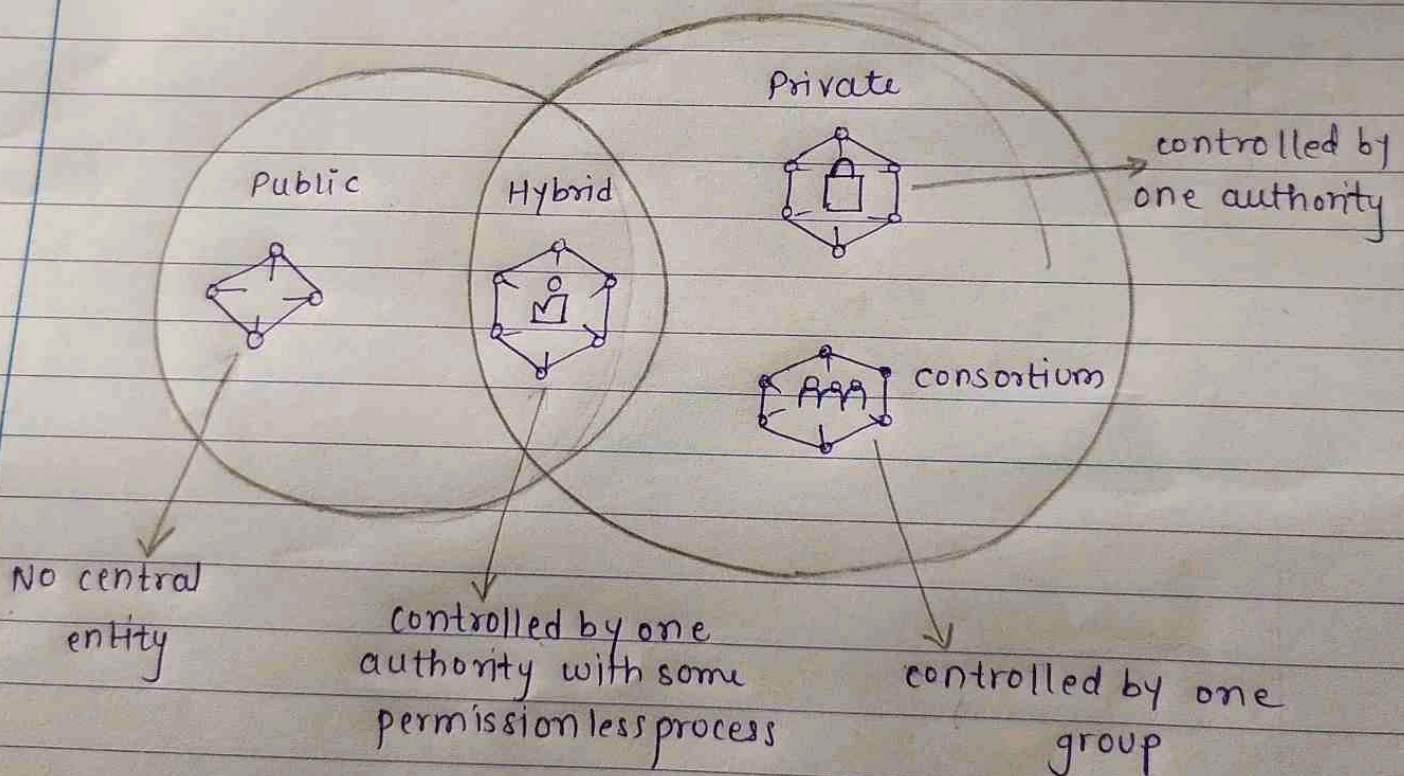 Private
controlled by
one authority
Public
Hybrid
consortium
No central
entity
controlled by one
authority with some
permissionless process
controlled by one
group